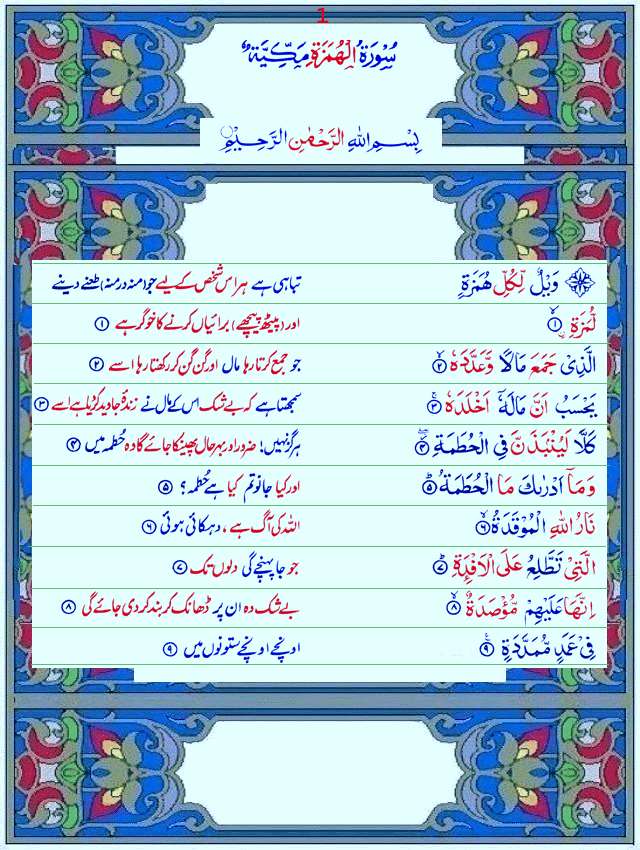 1
سُوْرَةُ الْهُمَزَةِ مَكِّيَّةٌ
بِسْمِ اللهِ الرَّحْمٰنِ الرَّحِيْمِ
وَيْلٌ لِّكُلِّ هُمَزَةٍ تباہی ہے ہر اس شخص کے لیے جو (منہ در منہ) طعنے دینے
لُّمَزَةِ ۙ﴿۱﴾ اور (پیٹھ پیچھے) برائیاں کرنے کا خوگر ہے ﴿۱﴾
الَّذِىْ جَمَعَ مَالًا وَّعَدَّدَهٗ ۙ﴿۲﴾ جو جمع کرتا رہا مال اور گن گن کر رکھتا رہا اسے ﴿۲﴾
يَحْسَبُ اَنَّ مَالَهٗۤ اَخْلَدَهٗ ۚ﴿۳﴾ سمجھتا ہے کہ بے شک اس کے مال نے زندۂ جاوید کر دیا ہے اسے ﴿۳﴾
كَلَّا لَيُنْۢبَذَنَّ فِى الْحُطَمَةِ ۖ﴿۴﴾ ہرگز نہیں! ضرور اور بہر حال پھینکا جائے گا وہ حُطمہ میں ﴿۴﴾
وَمَاۤ اَدْرٰىكَ مَا الْحُطَمَةُ ؕ﴿۵﴾ اور کیا جانو تم کیا ہے حُطمہ؟ ﴿۵﴾
نَارُ اللهِ الْمُوْقَدَةُ ۙ﴿۶﴾ اللہ کی آگ ہے ، دہکائی ہوئی ﴿۶﴾
الَّتِىْ تَطَّلِعُ عَلَى الْاَفْـِٕدَةِ ؕ﴿۷﴾ جو جا پہنچے گی دلوں تک ﴿۷﴾
اِنَّهَا عَلَيْهِمْ مُّؤْصَدَةٌ ۙ﴿۸﴾ بے شک وہ ان پر ڈھانک کر بند کر دی جائے گی ﴿۸﴾
فِىْ عَمَدٍ مُّمَدَّدَةٍ ۧ﴿۹﴾ اونچے اونچے ستونوں میں ﴿۹﴾